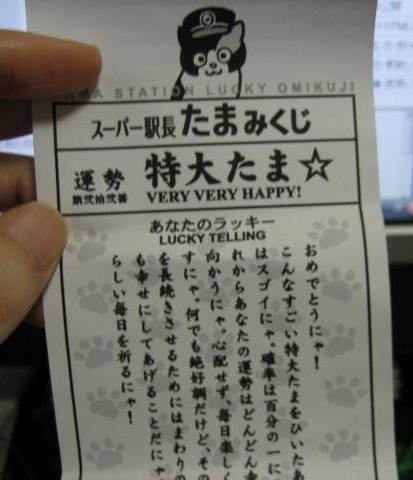 TAMA STATION LUCKY OMIKUJI
スーパー駅長たまみくじ
運勢
第弐拾弐番
特大たま☆
VERY VERY HAPPY!
あなたのラッキー
LUCKY TELLING
おめでとうにゃ!
こんなすごい特大たまをひいたあ
はスゴイにゃ。確率は百分の一に
れからあなたの運勢はどんどん
向かうにゃ。心配せず、毎日楽しく
すにゃ。何でも絶好調だけど、その
を長続きさせるためにはまわりの
も幸せにしてあげることだにゃ
らしい毎日を祈るにゃ!